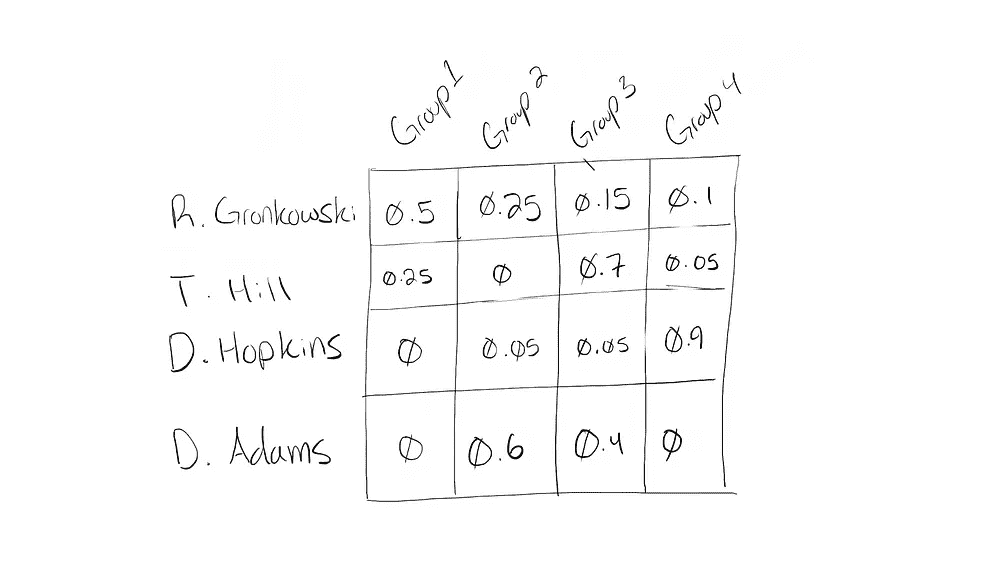 Group 1 Group 2 Group 3 Group 4
R. Gronkowski 0.5 0.25 0.15 0.1
T. Hill 0.25 0 0.7 0.05
D. Hopkins 0 0.05 0.05 0.9
D. Adams 0 0.6 0.4 0